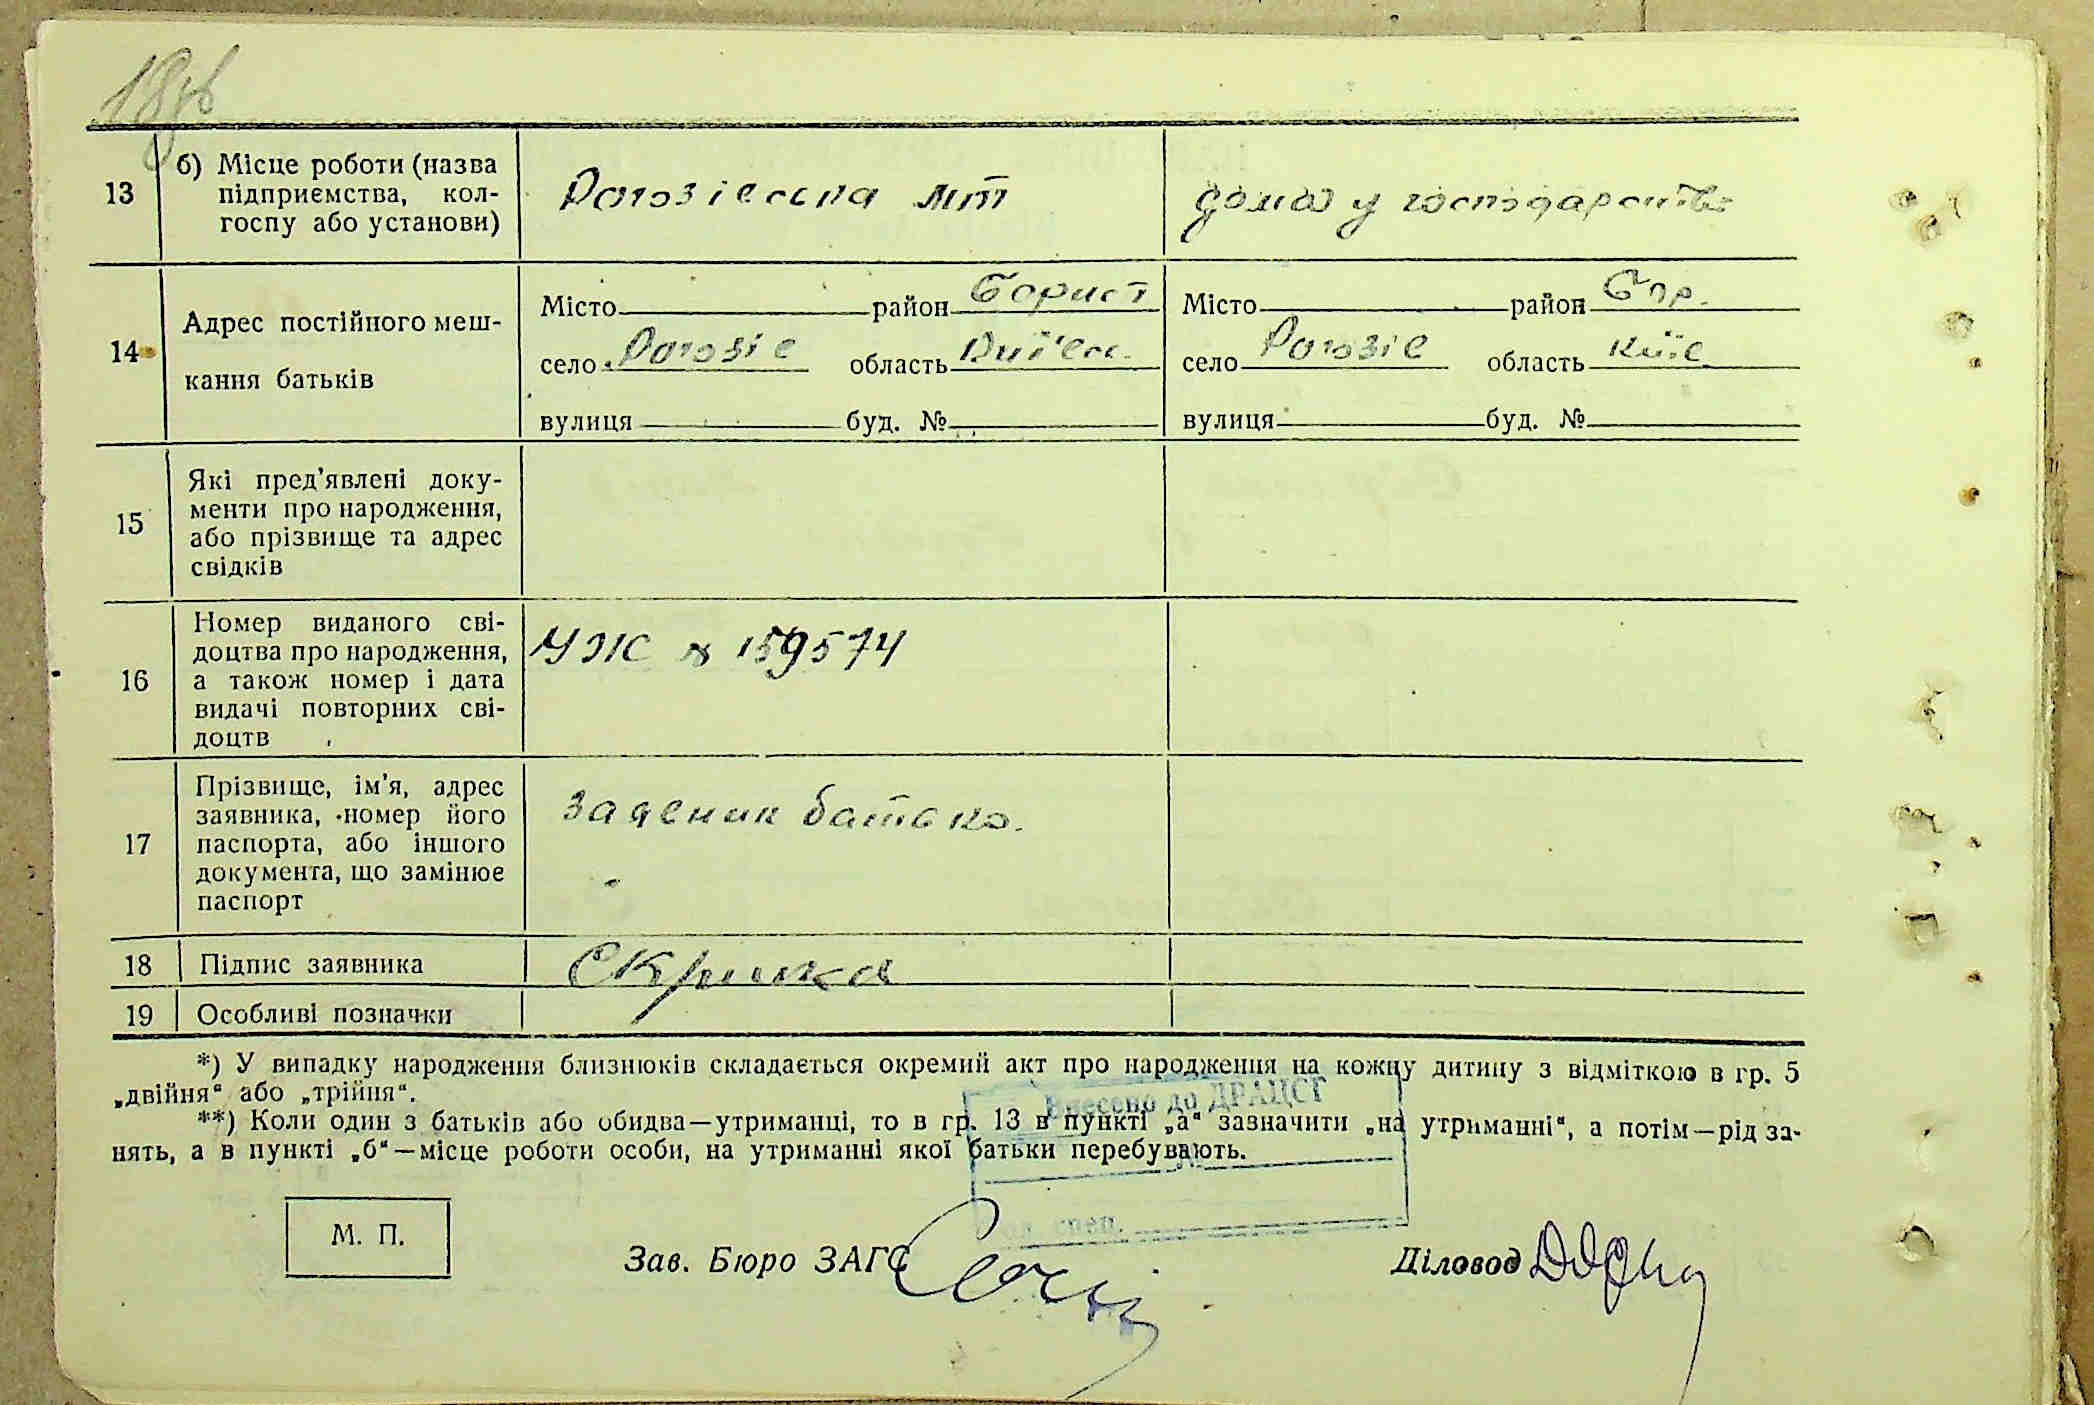 18зв
13
б) Місце роботи (назва
підприємства, кол-
госпу або установи)
Рогозівська мт
дома у господарстві
14
Адрес постійного меш-
кання батьків
Місто район Борисп
село Рогозів область Київськ.
вулиця буд. №
Місто район Бор.
село Рогозів область Київ
вулиця буд. №
15
Які пред'явлені доку-
менти про народження,
або прізвище та адрес
свідків
16
Номер виданого сві-
доцтва про народження,
а також номер і дата
видачі повторних сві-
доцтв
УЖ № 159574
17
Прізвище, ім'я, адрес
заявника, номер його
паспорта, або іншого
документа, що замінює
паспорт
батько.
18 Підпис заявника
Скрипка
19 Особливі позначки
*) У випадку народження близнюків складається окремий акт про народження на кожну дитину з відміткою в гр. 5
„двійня“ або „трійня“.
**) Коли один з батьків або обидва—утриманці, то в гр. 13 в пункті „а“ зазначити „на утриманні“, а потім—рід за-
нять, а в пункті „б“—місце роботи особи, на утриманні якої батьки перебувають.
Внесено до ДРАЦСГ
№
спец.
М. П.
Зав. Бюро ЗАГС
Діловод